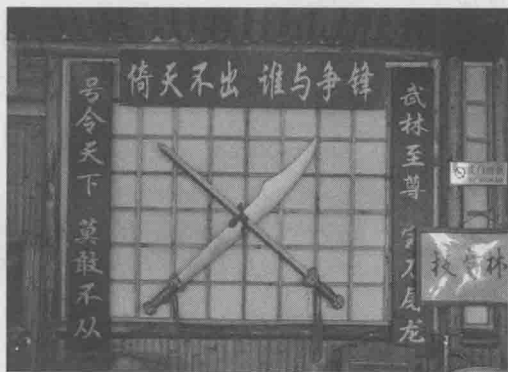 倚天不出 谁与争锋
武林至尊 宝刀屠龙
号令天下 莫敢不从